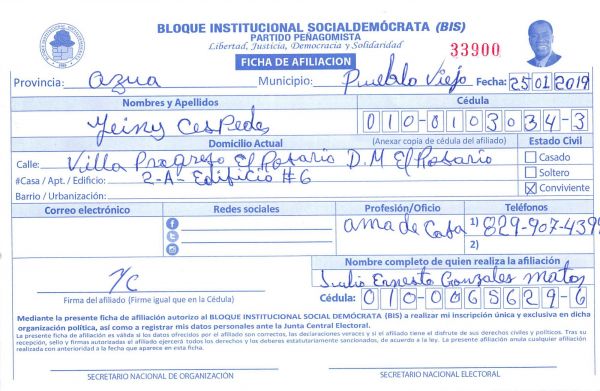 BLOQUE INSTITUCIONAL SOCIALDEMÓCRATA (BIS)
PARTIDO PEÑAGOMISTA
Libertad, Justicia, Democracia y Solidaridad
33900
FICHA DE AFILIACION
Provincia: Azua Municipio: Pueblo Viejo Fecha: 25 01 2019
Nombres y Apellidos Cédula
Yeiny Cespedes 010-0103034-3
Domicilio Actual (Anexar copia de cédula del afiliado) Estado Civil
Calle: Villa Progreso El Rosario D.M El Rosario Casado
#Casa / Apt. / Edificio: 2-A- Edificio #6 Soltero
Barrio / Urbanización: X Conviviente
Correo electrónico Redes sociales Profesión/Oficio Teléfonos
ama de Casa 1) 829-907-439
2)
Nombre completo de quien realiza la afiliación
Y/C Julio Ernesto Gonzales Matos
Firma del afiliado (Firme igual que en la Cédula) Cédula: 010-0065629-6
Mediante la presente ficha de afiliación autorizo al BLOQUE INSTITUCIONAL SOCIAL DEMÓCRATA (BIS) a realizar mi inscripción única y exclusiva en dicha
organización política, así como a registrar mis datos personales ante la Junta Central Electoral.
La presente ficha de afiliación es válida si los datos ofrecidos por el afiliado son correctos, las declaraciones veraces y si el afiliado tiene el disfrute de sus derechos civiles y políticos. Tras su
recepción, sello y firmas autorizadas el afiliado ejercerá todos los derechos y los deberes estatutariamente sancionados, de acuerdo a la ley. La presente afiliación anula cualquier afiliación
realizada con anterioridad a la fecha que aparece en esta ficha.
SECRETARIO NACIONAL DE ORGANIZACIÓN SECRETARIO NACIONAL ELECTORAL